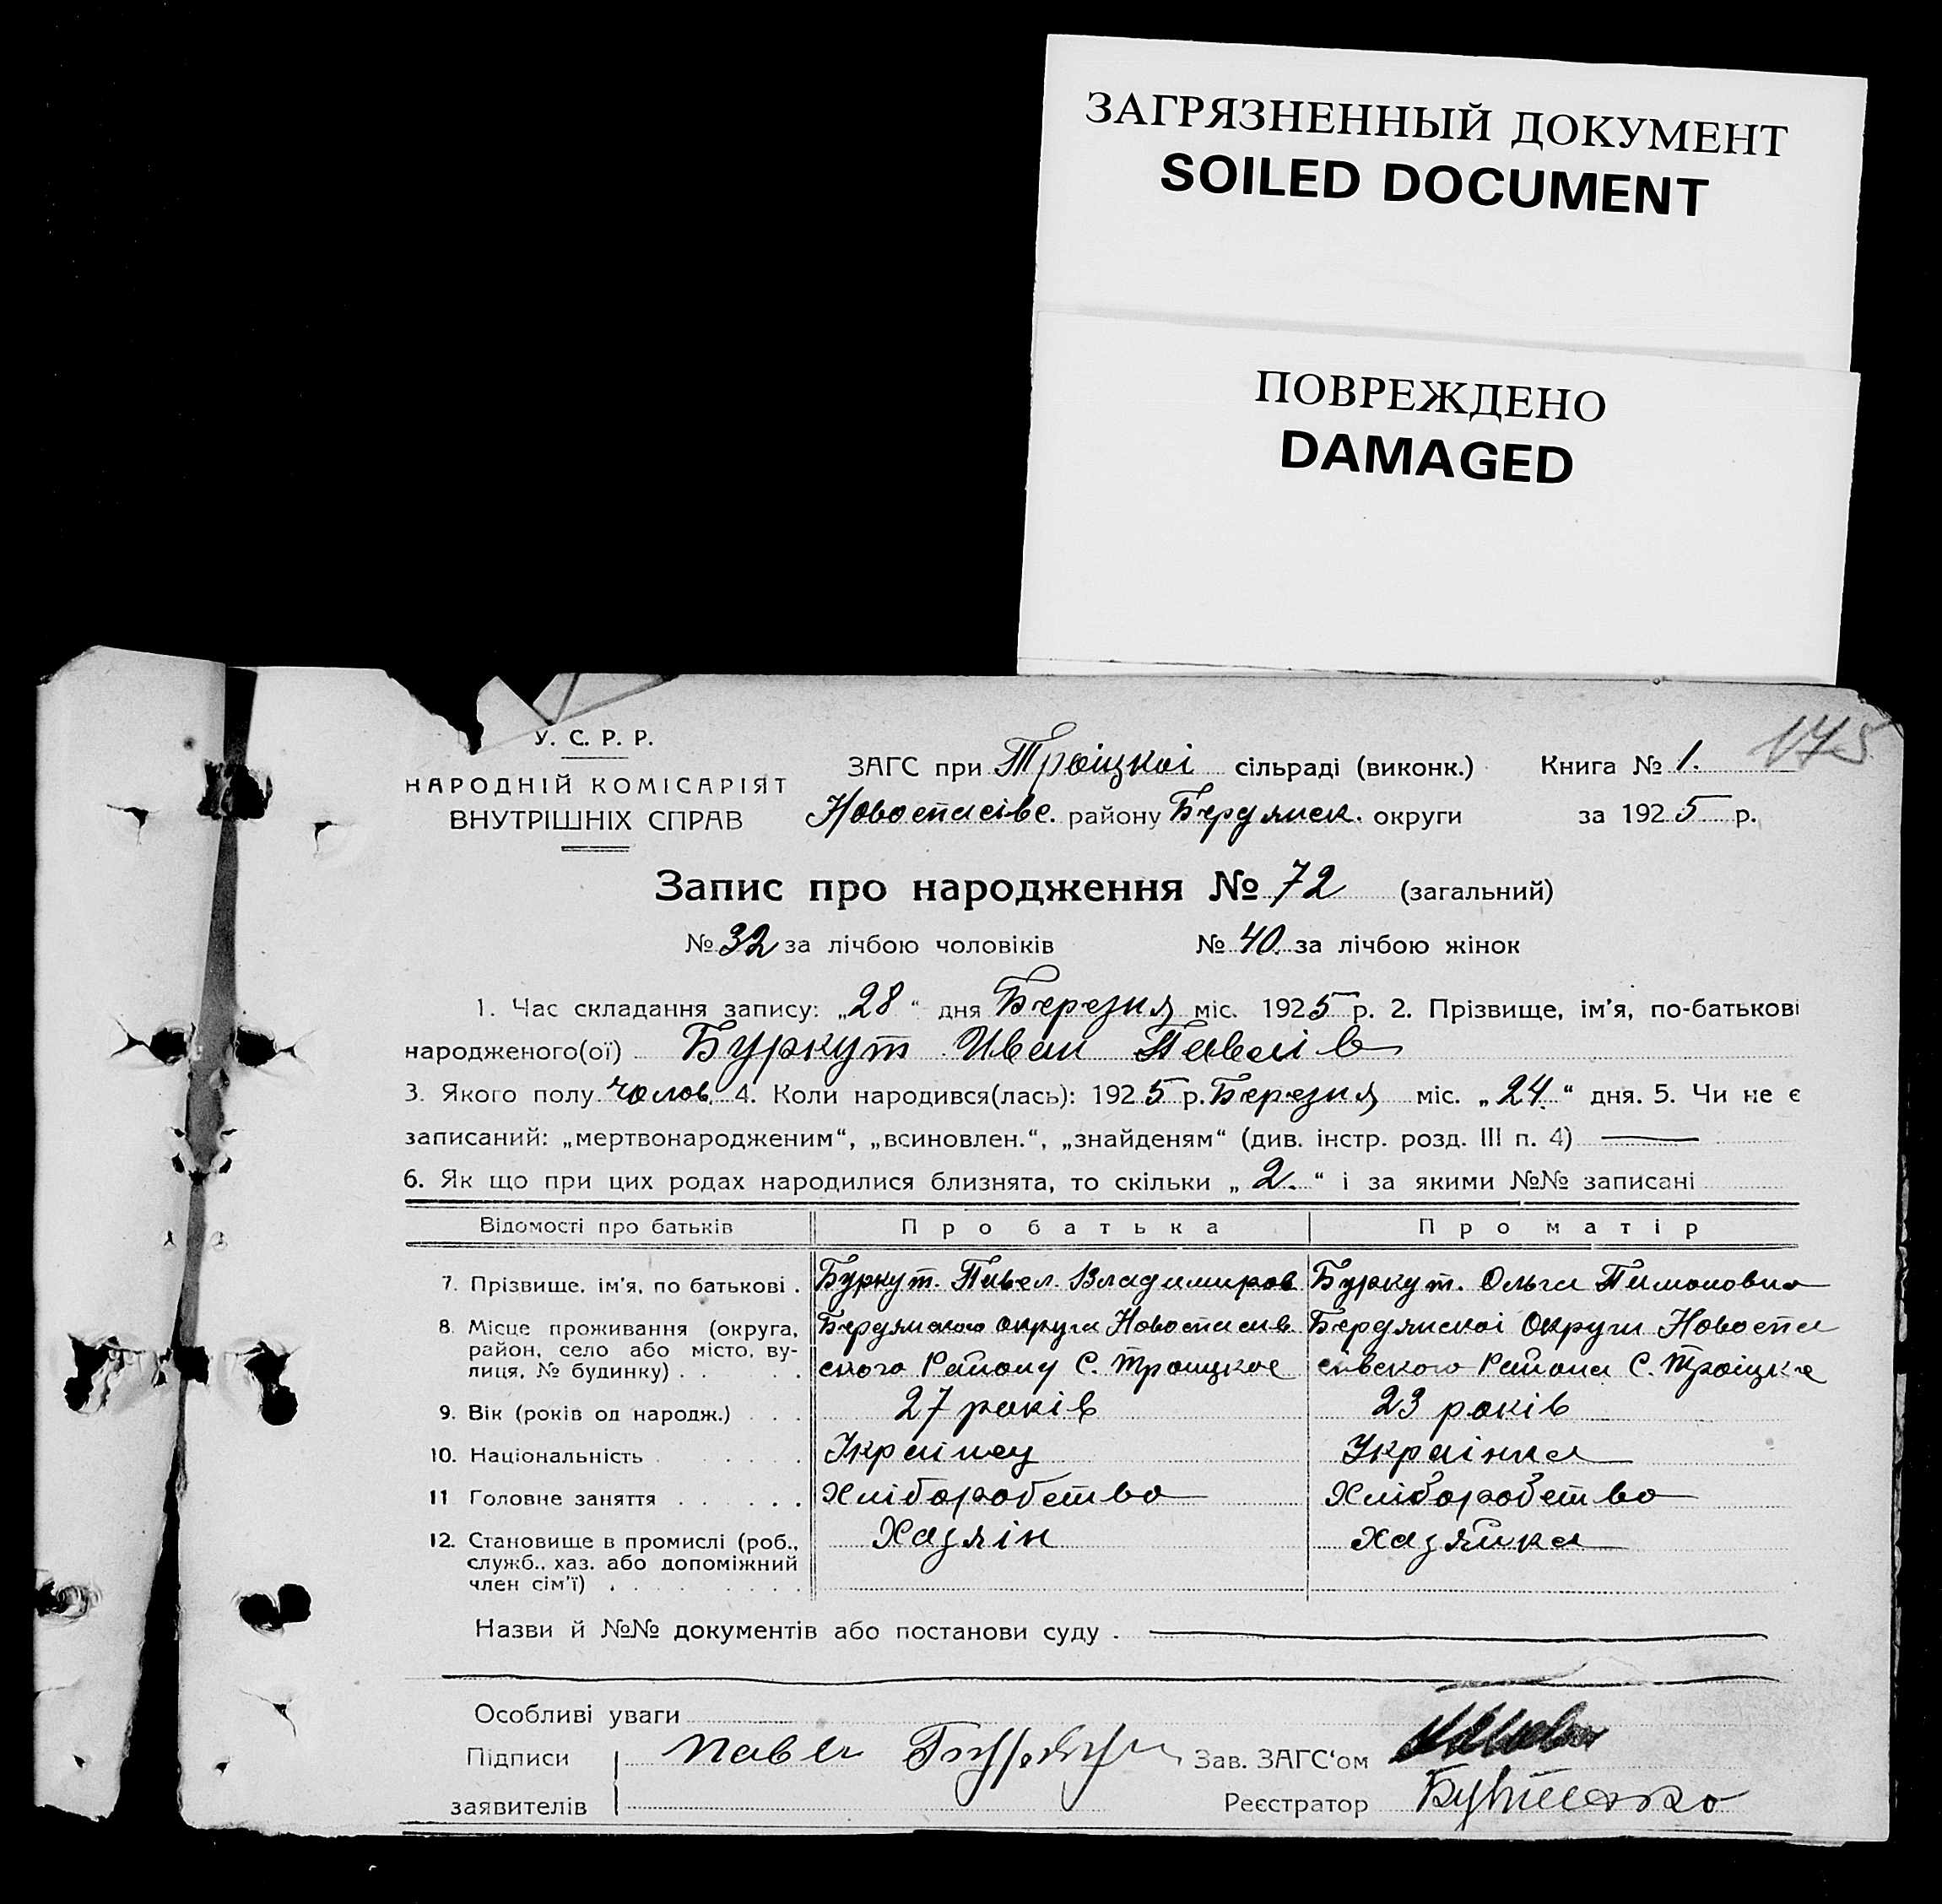 ЗАГРЯЗНЕННЫЙ ДОКУМЕНТ
SOILED DOCUMENT
ПОВРЕЖДЕНО
DAMAGED
175
У. С. Р. Р.
НАРОДНІЙ КОМІСАРІЯТ
ВНУТРІШНІХ СПРАВ
ЗАГС при Троіцкоі сільраді (виконк.) Книга № 1.
Новоспасівс. району Бердянск. округи за 1925 р.
Запис про народження № 72 (загальний)
№ 32 за лічбою чоловіків № 40. за лічбою жінок
1. Час складання запису: „28“ дня Березня міс. 1925 р. 2. Прізвище, ім’я, по-батькові
народженого(ої) Буркут Иван Павлів
3. Якого полу чолов. 4. Коли народився(лась): 1925 р. Березня міс. „24.“ дня. 5. Чи не є
записаний: „мертвонародженим“, „всиновлен.“, „знайденям“ (див. інстр. розд. III п. 4)
6. Як що при цих родах народилися близнята, то скільки „2.“ і за якими №№ записані
Відомості про батьків Про батька Про матір
7. Прізвище, ім’я, по батькові . Буркут. Павел. Владимиров Буркут. Ольга
8. Місце проживання (округа, район, село або місто, вулиця, № будинку) . . . Бердянского округа Новоспасив Бердянскоі Округи Новоспа
ского Району С. Троицкое сивского Района С. Троіцке
9. Вік (років од народж.) . . . 27 років 23 років
10. Національність . . . . . . Украінец Украінка
11 Головне заняття . . . . . . Хліборобство Хліборобство
12. Становище в промислі (роб., служб., хаз. або допоміжний член сім’ї) . . . . . . . Хазяін хазяйка
Назви й №№ документів або постанови суду .
Особливі уваги
Підписи Павел Зав. ЗАГС‘ом
заявителів Реєстратор